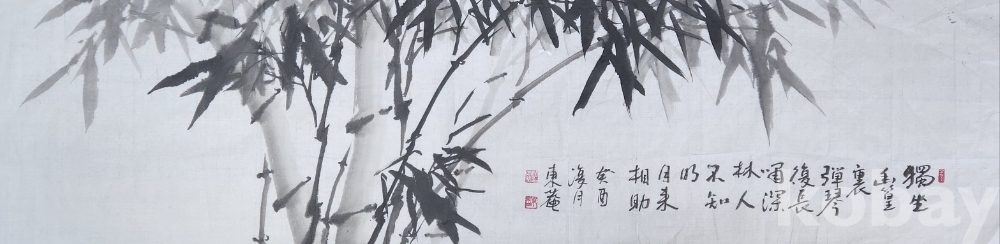 獨坐
幽篁
裏
彈琴
復長
嘯深
林人
不知
明
月來
相助
癸酉
月
東菴
Kobay